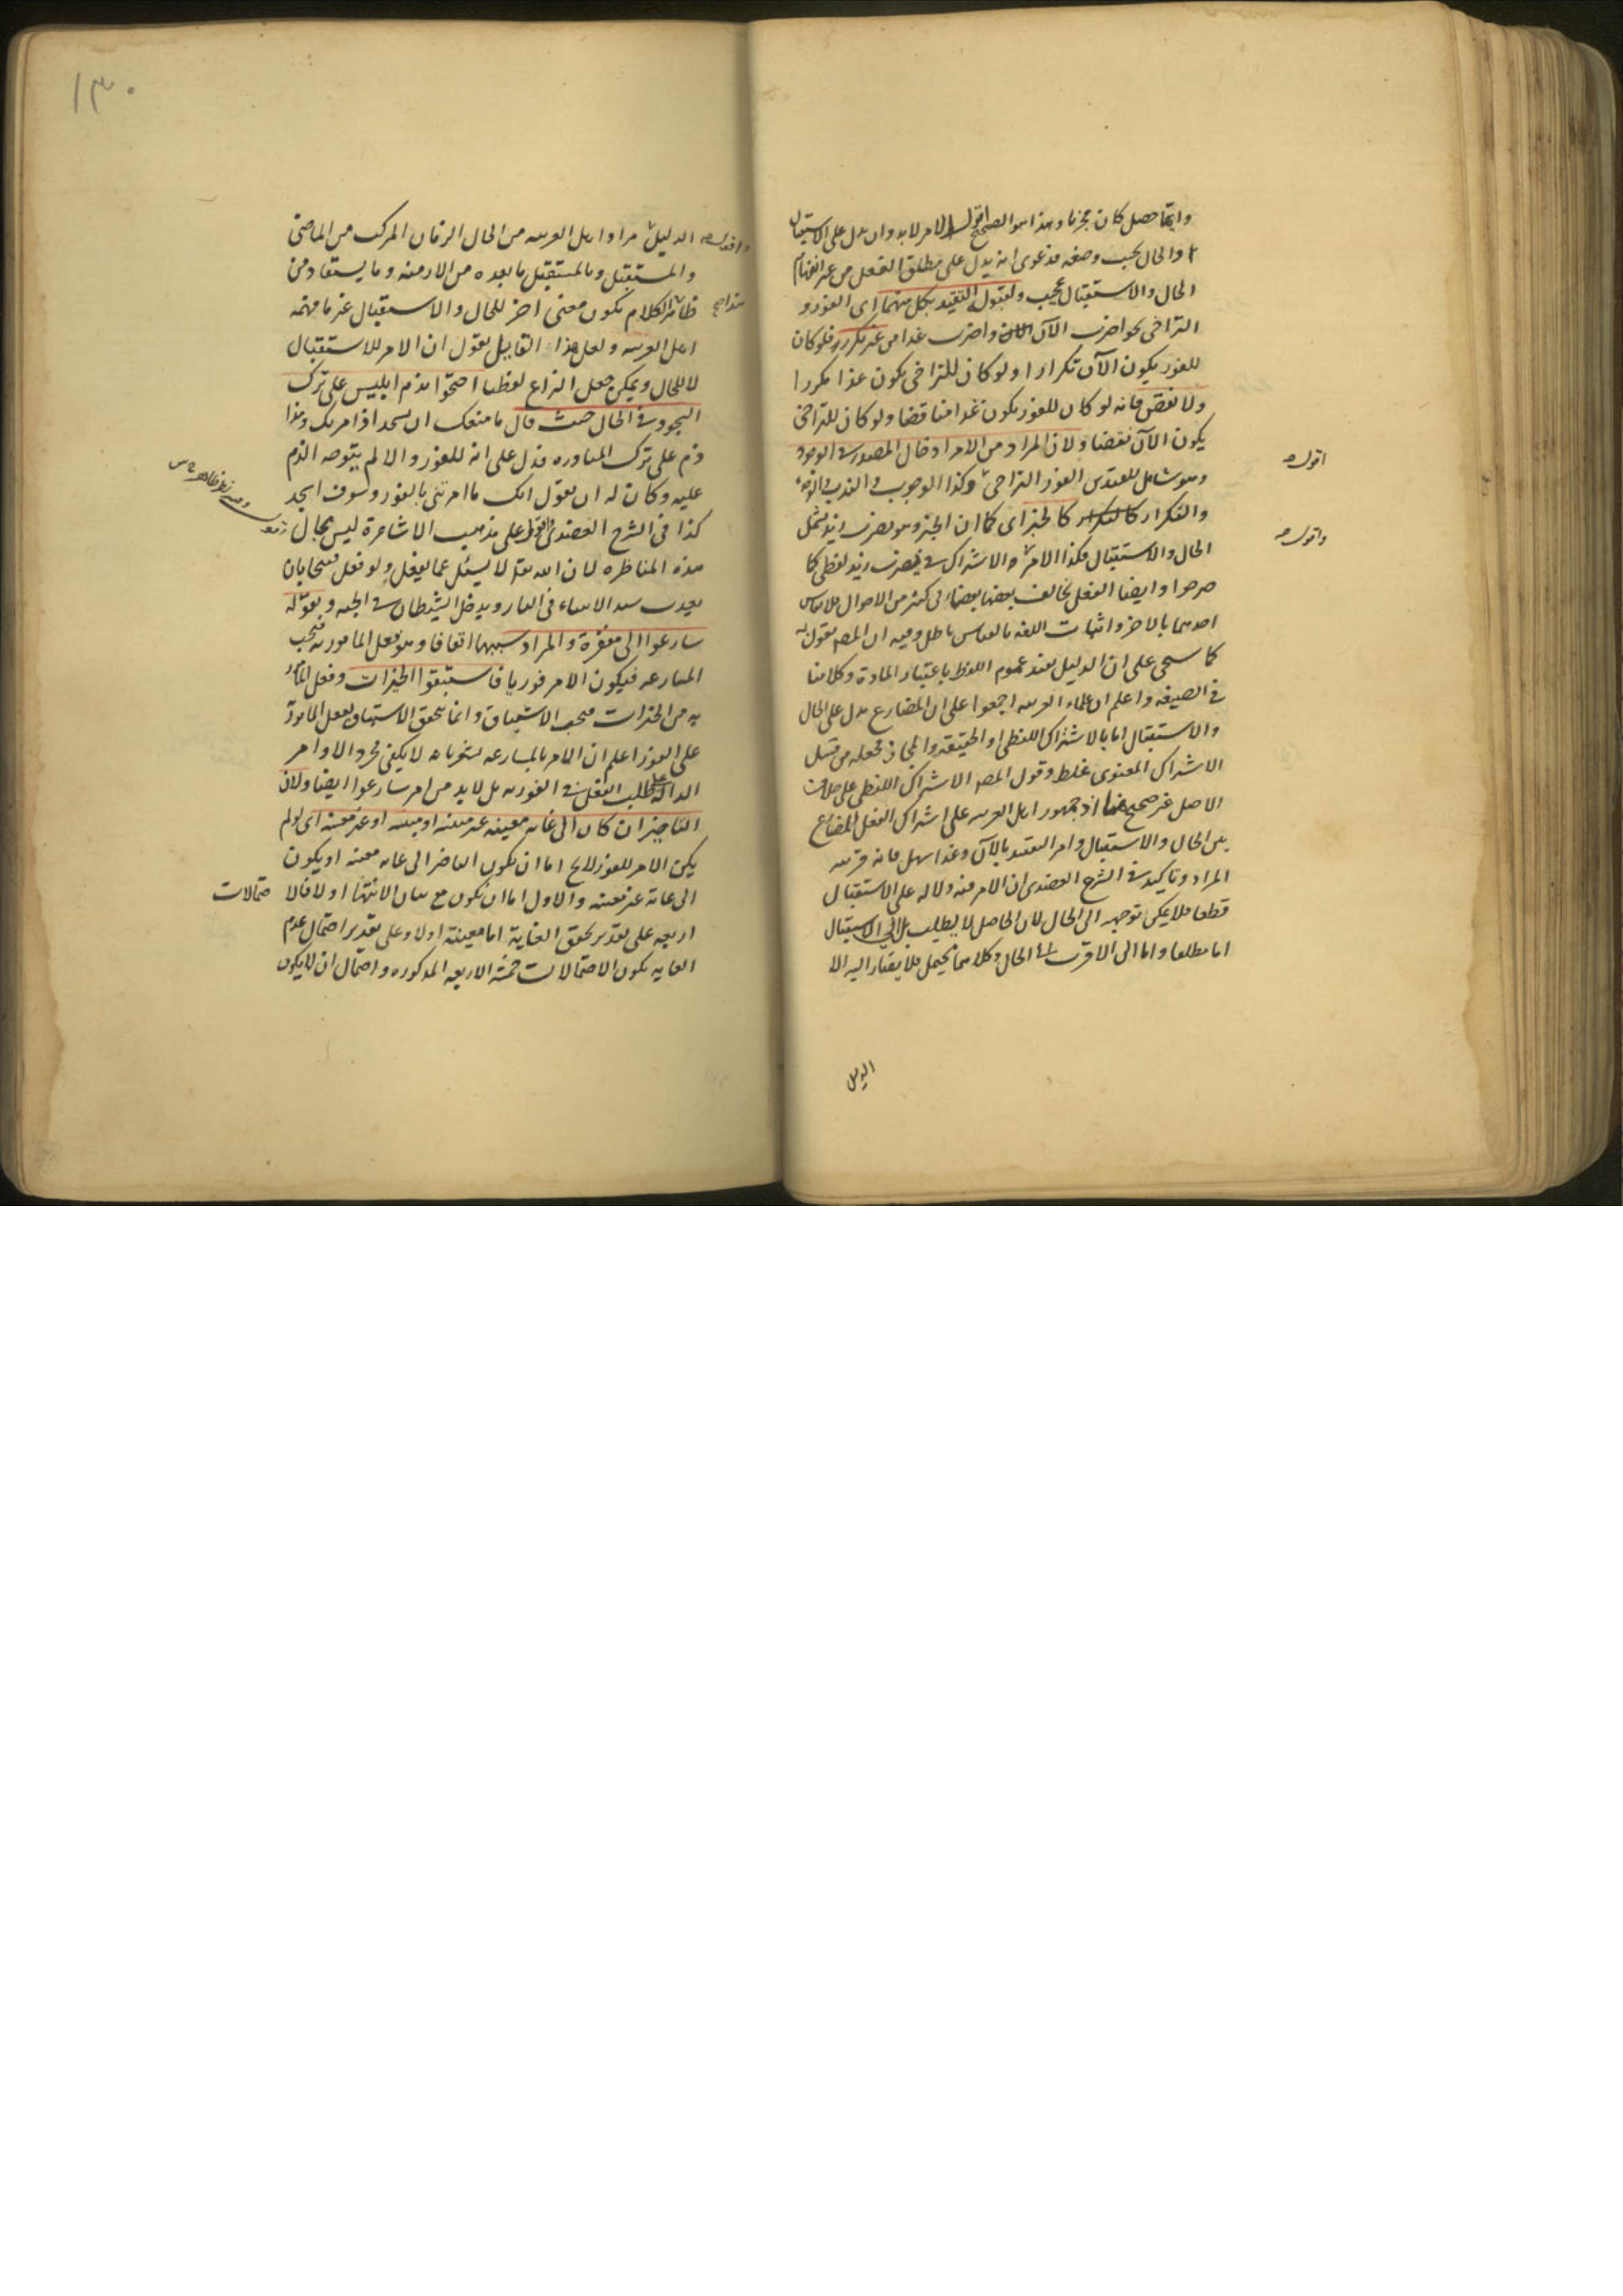 وايما حصل كان مجزيا وهذا هو الصحيح اقول الامر لابد وان يدل على الاستقبال
او الحال بحسب وضعه فدعوى انه يدل على مطلق الفعل من غير انفهام
الحال والاستقبال عجيب ولقبول التقييد بكل منهما اى الفور و
التراخى نحو اضرب الآن واضرب غدا من غير تكرر فلو كان
للفور يكون الآن تكرارا ولو كان للتراخى يكون غدا مكررا
ولا نقض فانه لو كان للفور يكون غدا مناقضا ولو كان للتراخى
يكون الآن نقضا ولان المراد من الامر ادخال المصدر فى الوجود
وهو شامل للقيدين الفور التراخى وكذا الوجوب الندب
والتكرار كالخبر اى كما ان الخبر وهو يضرب زيد يشمل
الحال والاستقبال فكذا الامر الاشتراك فى يضرب زيد لفظى كما
صرحوا وايضا الفعل يخالف بعضها بعضا فى كثير من الاحوال فلا يقاس
احدهما بالاخر واثبات اللغه بالقياس باطل وفيه ان المص يقول به
كما سيجى على ان الدليل يفيد عموم اللفظ باعتبار المادة وكلامنا
فى الصيغه واعلم ان علماء العربيه اجمعوا على ان المضارع يدل على الحال
والاستقبال اما بالاشتراك اللفظى او الحقيقه والمجاز فجعله من قبيل
الاشتراك المعنوى غلط وقول المص الاشتراك اللفظى على خلاف
الاصل غير صحيح هنا اذ جمهور اهل العربيه على اشتراك الفعل المضارع
بين الحال والاستقبال وامر التقييد بالآن وغدا سهل فانه قرينه
المراد وتاكيد فى الشرح العضدى ان الامر فيه دلاله على الاستقبال
قطعا فلا يمكن توجيهه الى الحال لان الحاصل لا يطلب بل الى الاستقبال
اما مطلقا واما الى الاقرب الى الحال وكلاهما محتمل فلا يصار اليه الا
اقول
واقول
الدليل
١٣٠
الدليل مراد اهل العربيه من الحال الزمان المركب من الماضى
والمستقبل وبالمستقبل ما بعده من الازمنه وما يستفاد من
ظاهر الكلام يكون معنى اخر للحال والاستقبال غير ما فهمه
اهل العربيه ولعل هذا القايل يقول ان الامر للاستقبال
لا للحال ويمكن جعل النزاع لفظيا احتجوا بذم ابليس على ترك
السجود فى الحال حيث قال ما منعك ان تسجد اذ امرتك وهذا
ذم على ترك المبادره فدل على انه للفور والا لم يتوجه الذم
عليه وكان له ان يقول انك ما امرتنى بالفور وسوف اسجد
كذا فى الشرح العضدى اقول على مذهب الاشاعرة ليس مجال
هذه المناظره لان الله تعالى لا يسئل عما يفعل ولو فعل قبيحا بان
يعذب سيد الانبياء فى النار ويدخل الشيطان فى الجنه وبقوله
سارعوا الى مغفرة والمراد سببها اتفاقا وهو فعل المامور به فيجب
المسارعه فيكون الامر فوريا فاستبقوا الخيرات وفعل المامور
به من الخيرات فيجب الاستباق وانما يتحقق الاستباق بفعل المامور
على الفور اعلم ان الامر بالمسارعه يشعر بانه لا يكفى مجرد الاوامر
الدالة على طلب الفعل فى الفوريه بل لابد من امر سارعوا ايضا ولان
التاخير ان كان الى غاية معينه غير مبينه او مبينه او غير معينه اى لو لم
يكن الامر للفور لا يخ اما ان يكون التاخير الى غايه معينه او يكون
الى غاية غير معينه والاول اما ان يكون مع بيان الانتها او لا فالا
حتمالات
اربعه على تقدير تحقق الغاية اما معينة او لا وعلى تقدير احتمال عدم
الغايه يكون الاحتمالات خمسة الاربعه المذكوره واحتمال ان لا يكون